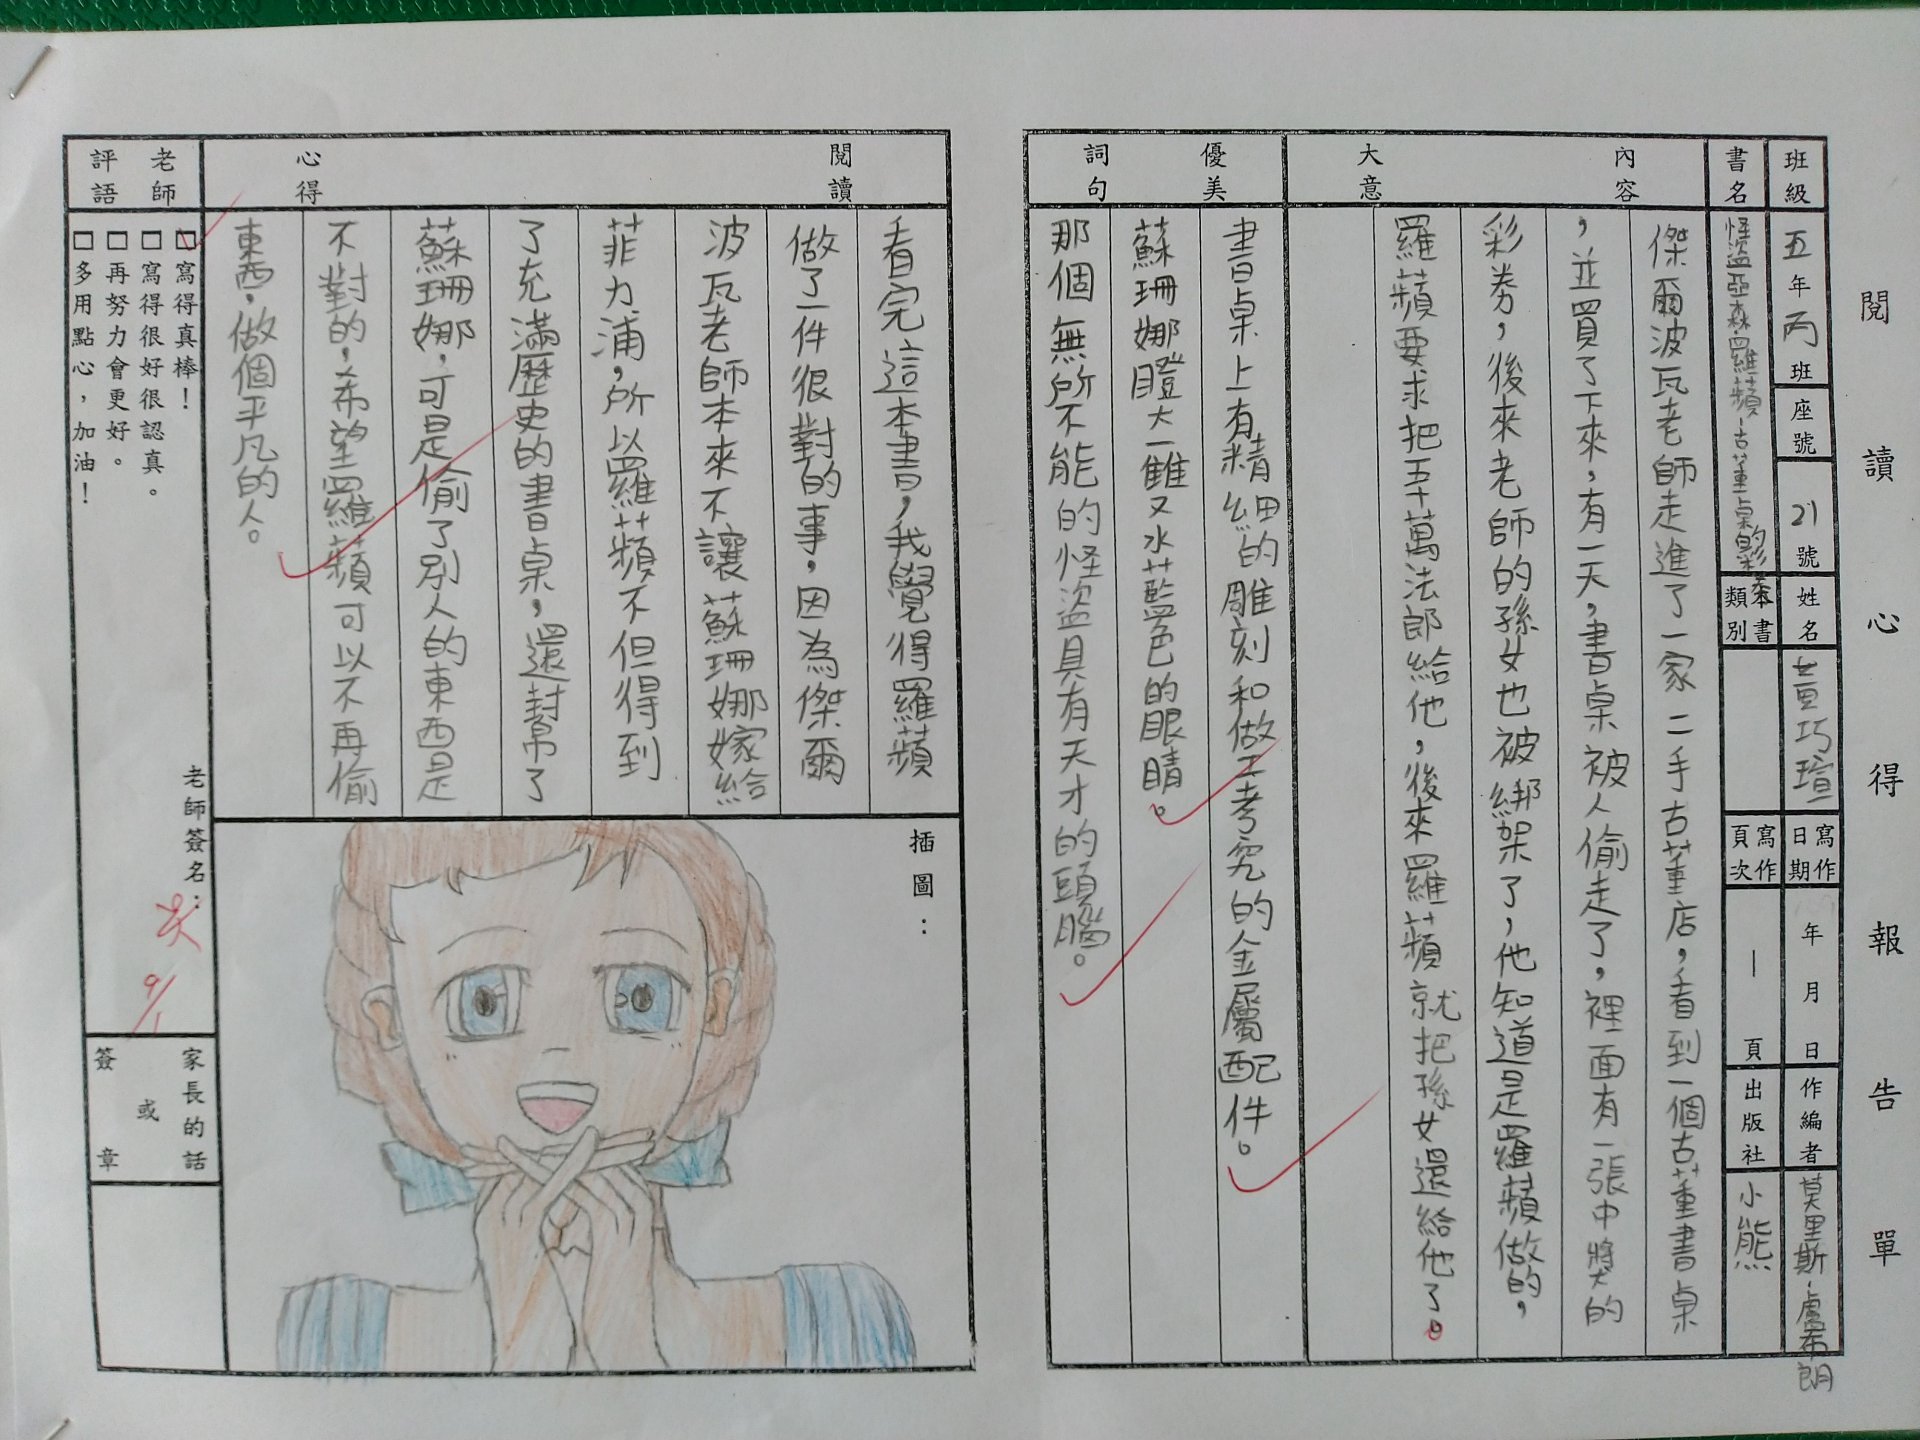 閱讀心得報告單
班級 五年丙班 座號 21號 姓名 黃巧瑄 寫作日期 年 月 日 作編者 莫里斯‧盧布朗
書名 怪盜亞森‧羅蘋-古董桌的彩券 本書類別 寫作頁次 一頁 出版社 小熊
內容大意
傑爾波瓦老師走進了一家二手古董店，看到一個古董書桌
，並買了下來，有一天，書桌被人偷走了，裡面有一張中獎的
彩券，後來老師的孫女也被綁架了，他知道是羅蘋做的，
羅蘋要求把五十萬法郎給他，後來羅蘋就把孫女還給他了。
優美詞句
書桌上有精細的雕刻和做工考究的金屬配件。
蘇珊娜瞪大一雙又水藍色的眼睛。
那個無所不能的怪盜具有天才的頭腦。
閱讀心得
看完這本書，我覺得羅蘋
做了一件很對的事，因為傑爾
波瓦老師本來不讓蘇珊娜嫁給
菲力浦，所以羅蘋不但得到
了充滿歷史的書桌，還幫了
蘇珊娜，可是偷了別人的東西是
不對的，希望羅蘋可以不再偷
東西，做個平凡的人。
插圖：
老師評語
□寫得真棒！
□寫得很好很認真。
□再努力會更好。
□多用點心，加油！
老師簽名：
9/1
家長的話或簽章